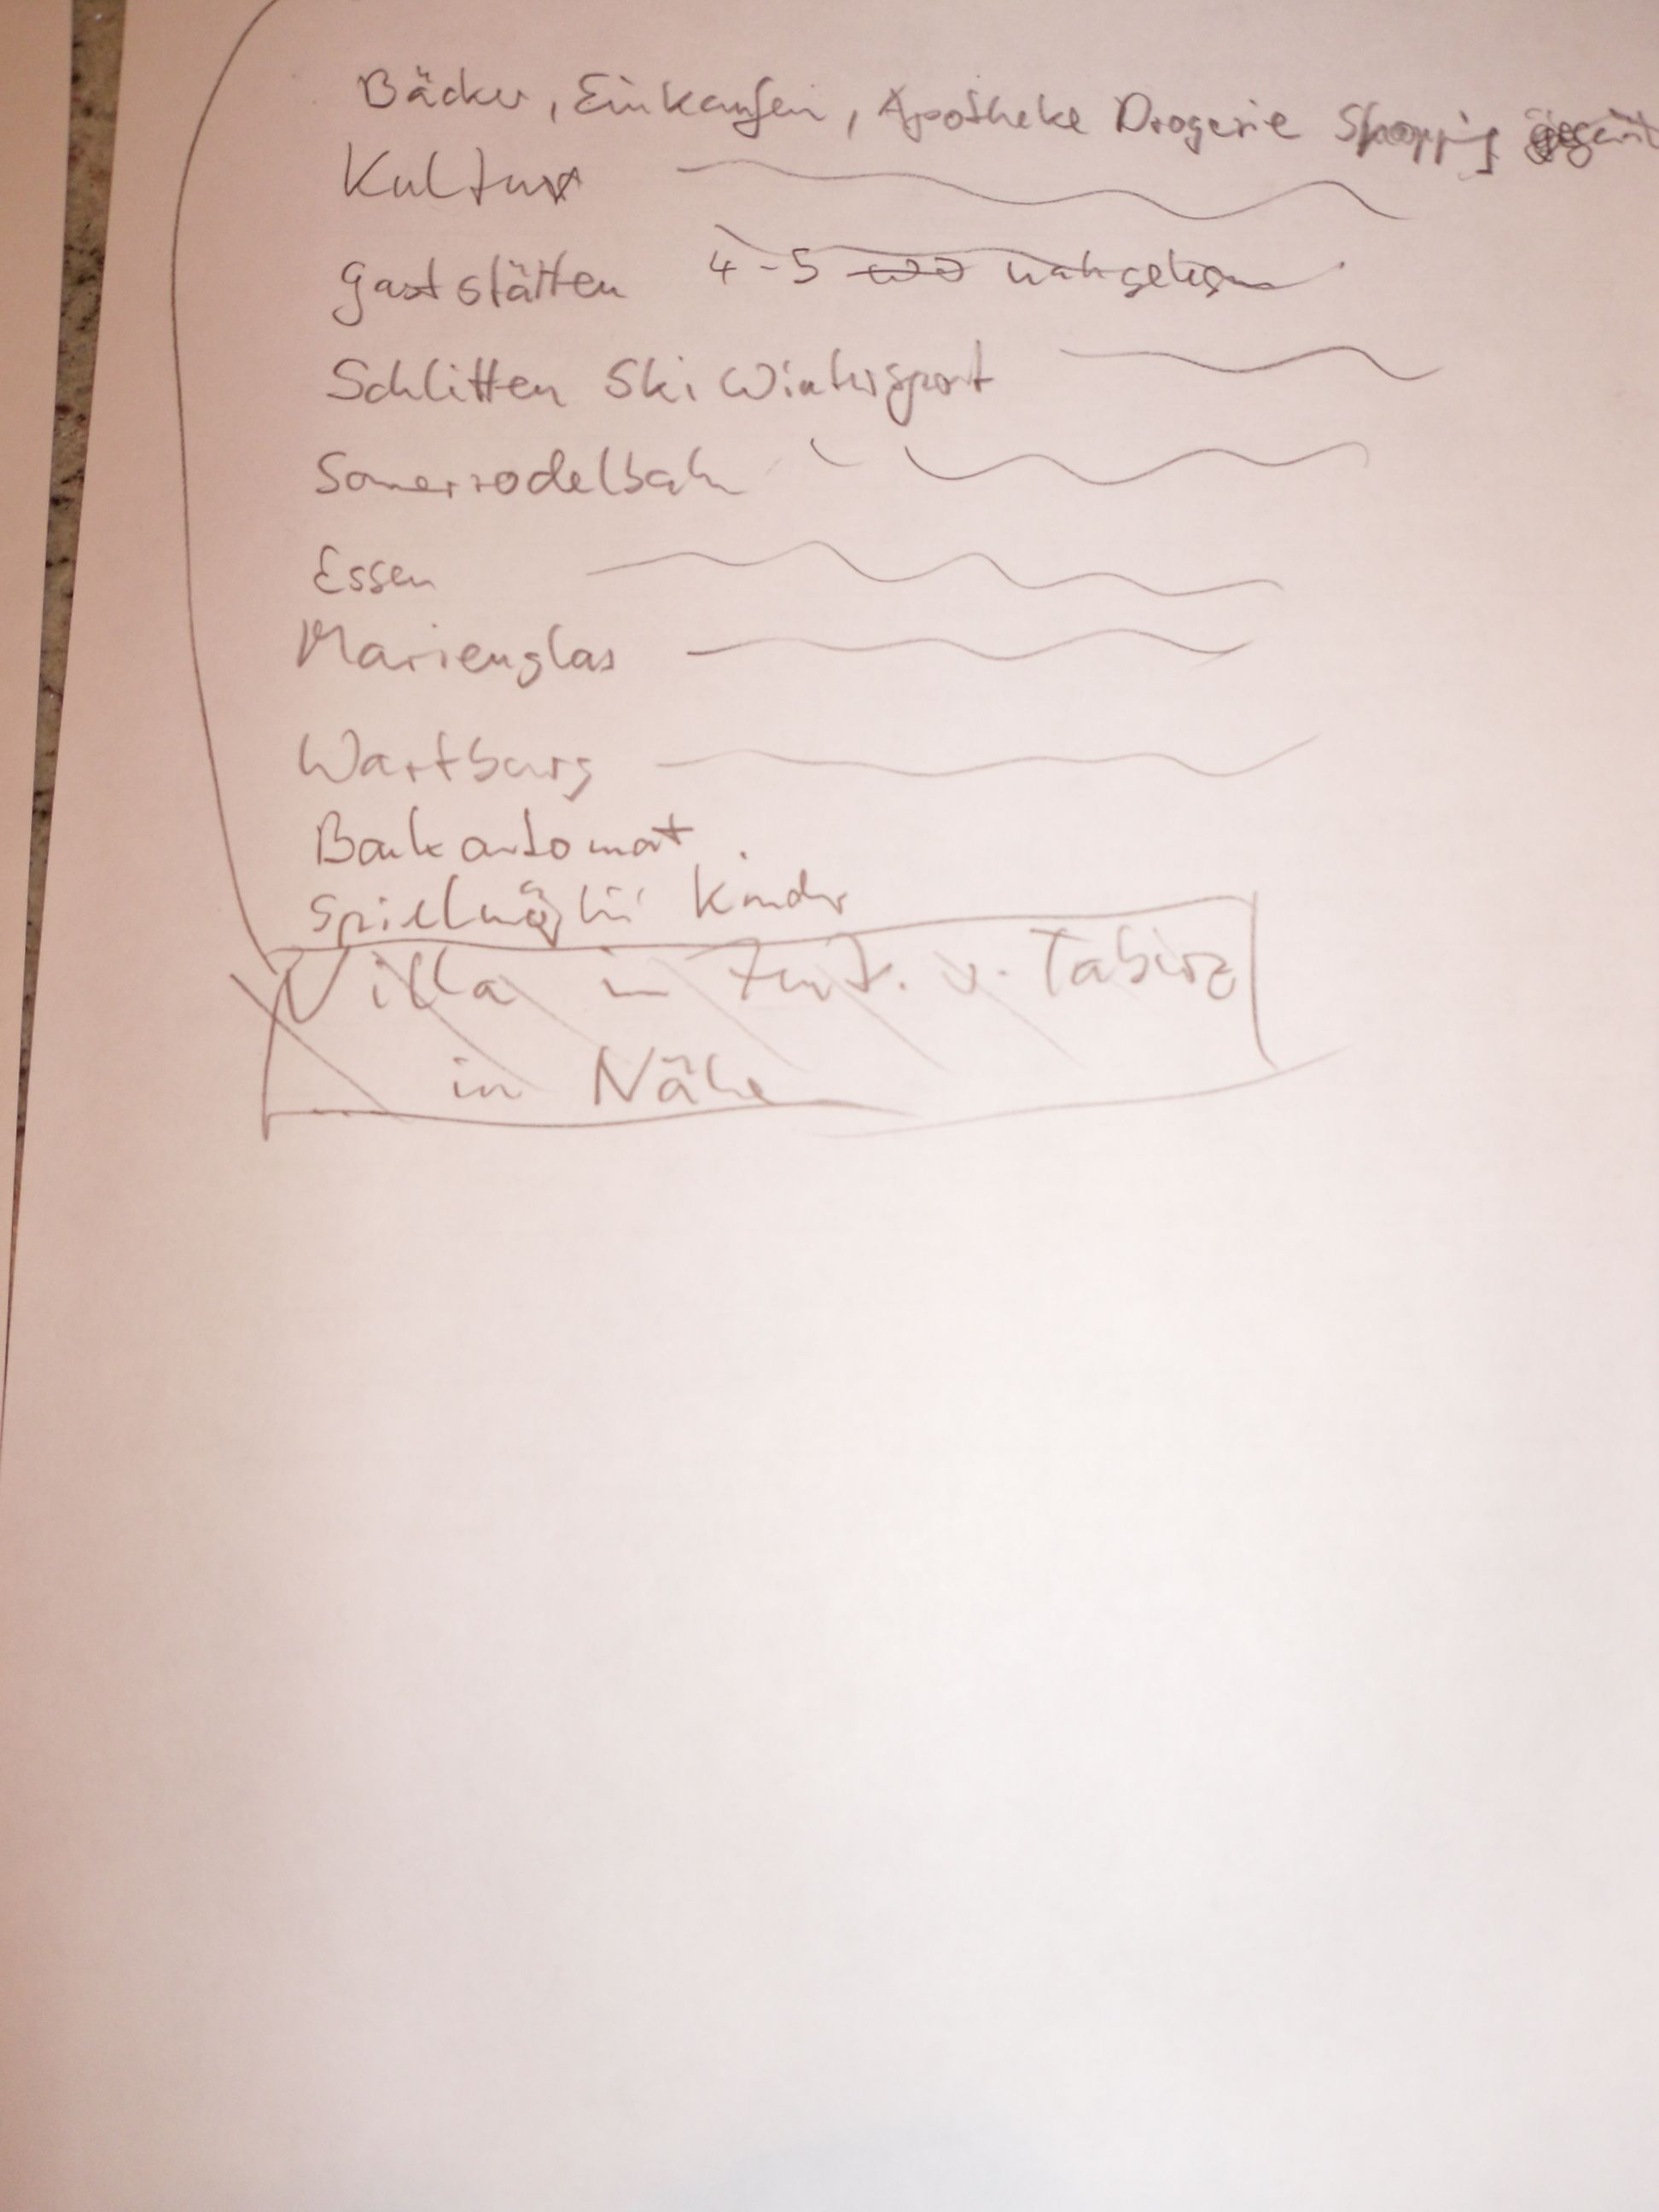 Bäcker, Einkaufen, Apotheke Drogerie Shopping
Kultur
Gaststätten 4-5 nahgelegen
Schlitten Ski Wintersport
Somerrodelbahn
Essen
Marienglas
Wartburg
Bankautomat
Spielmögli Kinder
Villa in Zent. v. Tabarz
in Nähe